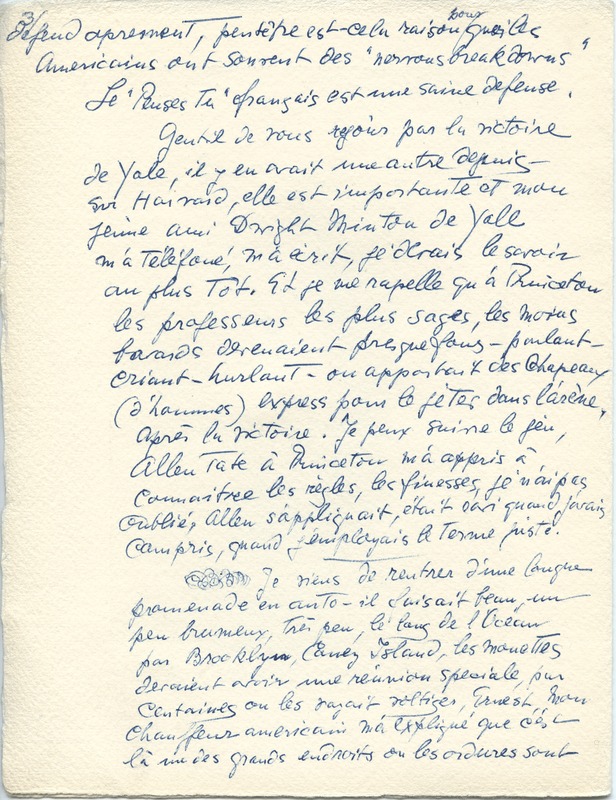 3/
défend aprement, peutêtre est-cela raison pour quoi les
Américains ont souvent des "nervous breakdowns"
Le "Penses Tu" français est une saine defense.
Gentil de vous rejouir par la victoire
de Yale, il y en avait une autre depuis -
sur Harvard, elle est importante et mon
jeune ami Dwight Minton de Yale
m'a téléfoné, m'a écrit, je devais le savoir
au plus Tot. Et je me rapelle qu'à Princeton
les professeurs les plus sages, les moins
bavards devenaient presque fous - parlant -
criant - hurlant - on apportait des Chapeaux
(d'hommes) express pour le jetes dans l'arène,
après la victoire. Je peux suivre le jeu,
Allen Tate à Princeton m'a appris à
connaitre les règles, les finesses, je n'ai pas
oublié, Allen s'appliquait, était ravi quand j'avais
compris, quand j'employais le Terme juste.
Je viens de rentrer d'une longue
promenade en auto - il faisait beau, un
peu brumeux, très peu, le long de l'Océan
par Brooklyn, Coney Island, les mouettes
devaient avoir une réunion speciale, par
centaines on les voyait voltiger, Ernest, mon
chauffeur américain m'a expliqué que c'est
là un des grands endroits ou les ordures sont